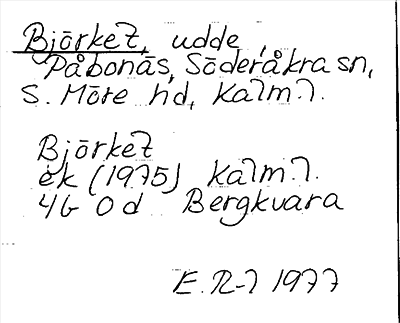 Björket, udde,
Påbonäs, Söderåkra sn,
S. Möre hd, Kalm. l.
Björket
ek (1975) Kalm. l.
4G 0d Bergkvara
E. R-l 1977